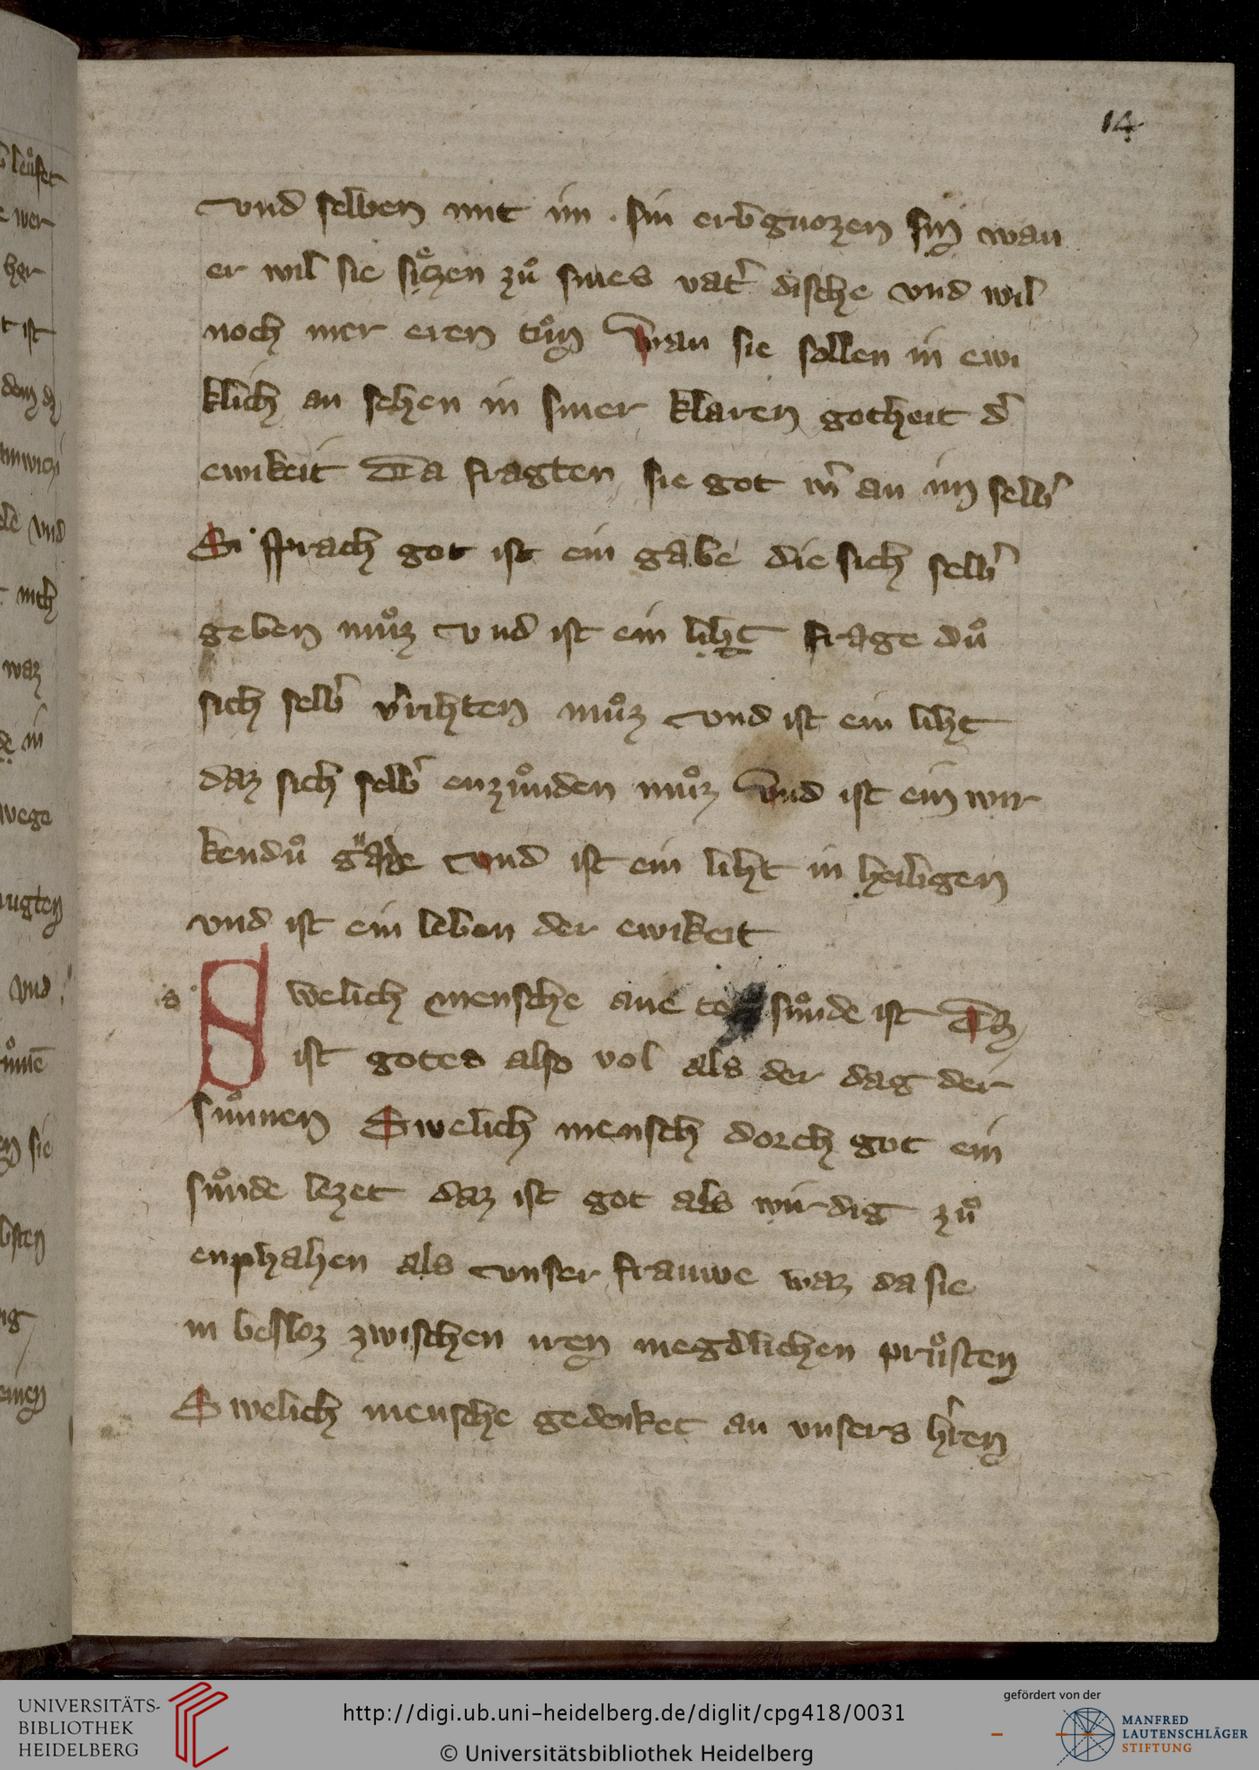 14
vnd selben mit im · sin erbgnozen sin wan
er wil sie siͤczen zuͦ sines vat̉ dische vnd wil
noch mer eren tuͦn Wan sie sollen in ewi
klich an sehen in siner klaren gotheit d̉
ewikeit Da fragten sie got wr̉ an im selb̉
Si sprach got ist ein gabe die sich selb̉
geben muͦz vnd ist ein liht frage duͦ
sich selb̉ v̉rihten muͦz vnd ist ein liht
daz sich selb̉ enzuͦnden muͦz Vnd ist ein wir
kenduͦ gnade vnd ist ein liht in heiligen
vnd ist ein leben der ewikeit
Swelich mensche ane suͦnde ist Daz
ist gotes also vol als der dag der
suͦnnen Swelich mensch dorch got ein
suͦnde lezet daz ist got als wirdig zuͦ
enphahen als vnser frauwe waz da sie
in besloz zwischen iren megdlichen pruͦsten
Swelich mensche gedenket an vnsers hr̉en
UNIVERSITÄTS-
BIBLIOTHEK
HEIDELBERG
http://digi.ub.uni-heidelberg.de/diglit/cpg418/0031
© Universitätsbibliothek Heidelberg
gefördert von der
MANFRED
LAUTENSCHLÄGER
STIFTUNG